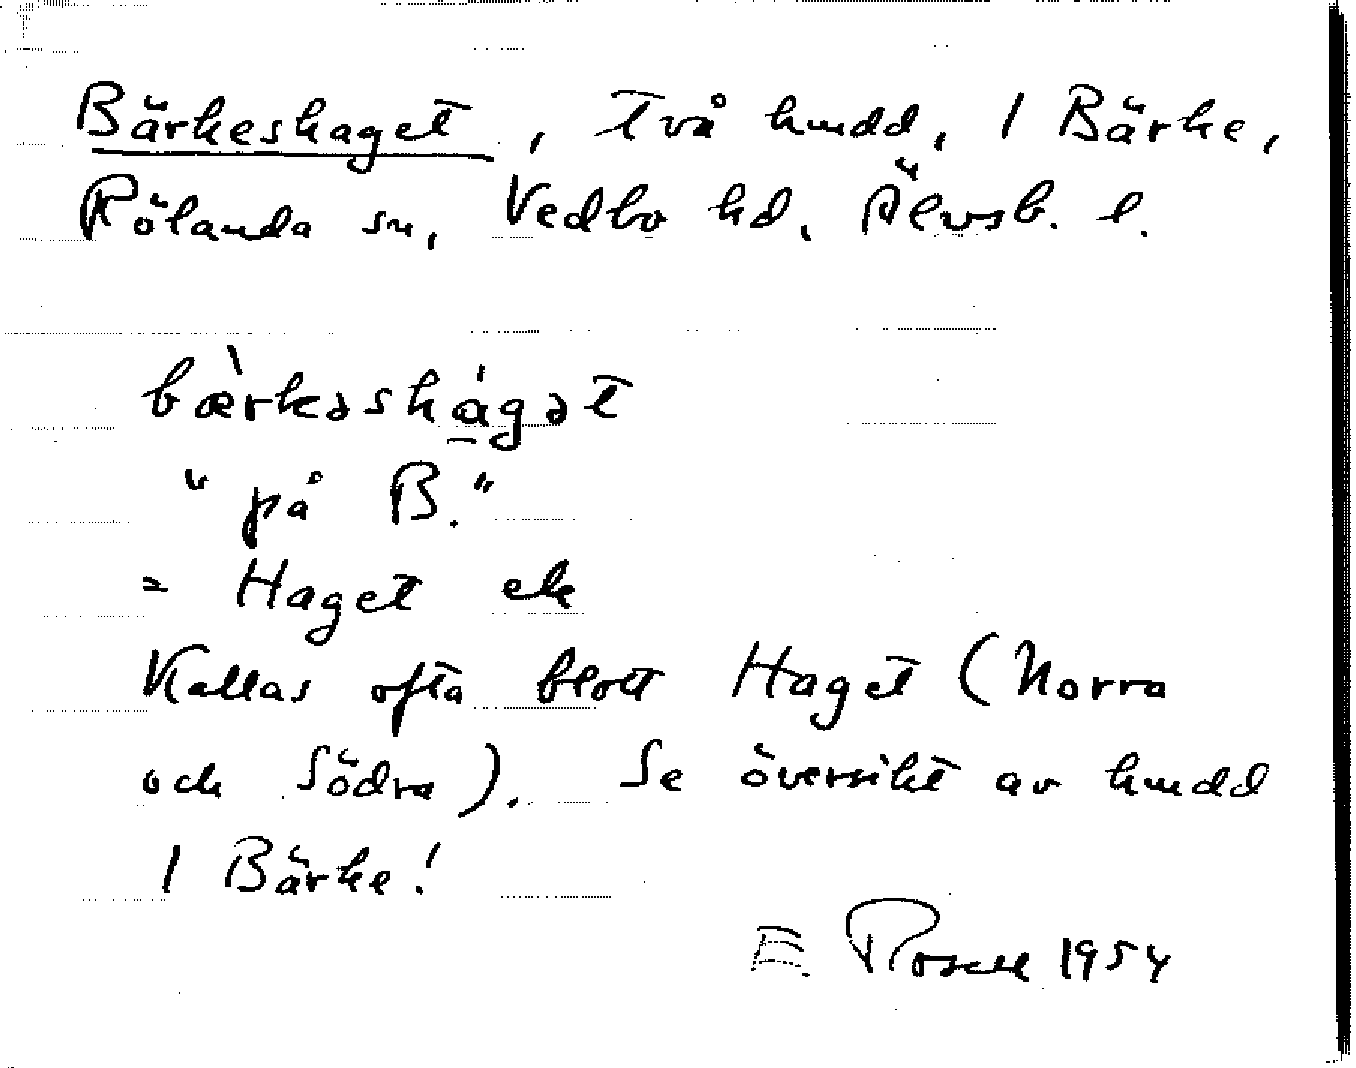 Bärkeshaget, Två hmdd, / Bärke,
Rölanda sn, Vedbo hd. Älvsb. l.
bærkəshágət
"på B."
= Haget ek
Kallas ofta blott Haget (Norra
och Södra). Se översikt av hmdd
/ Bärke!
E Rosell 1954